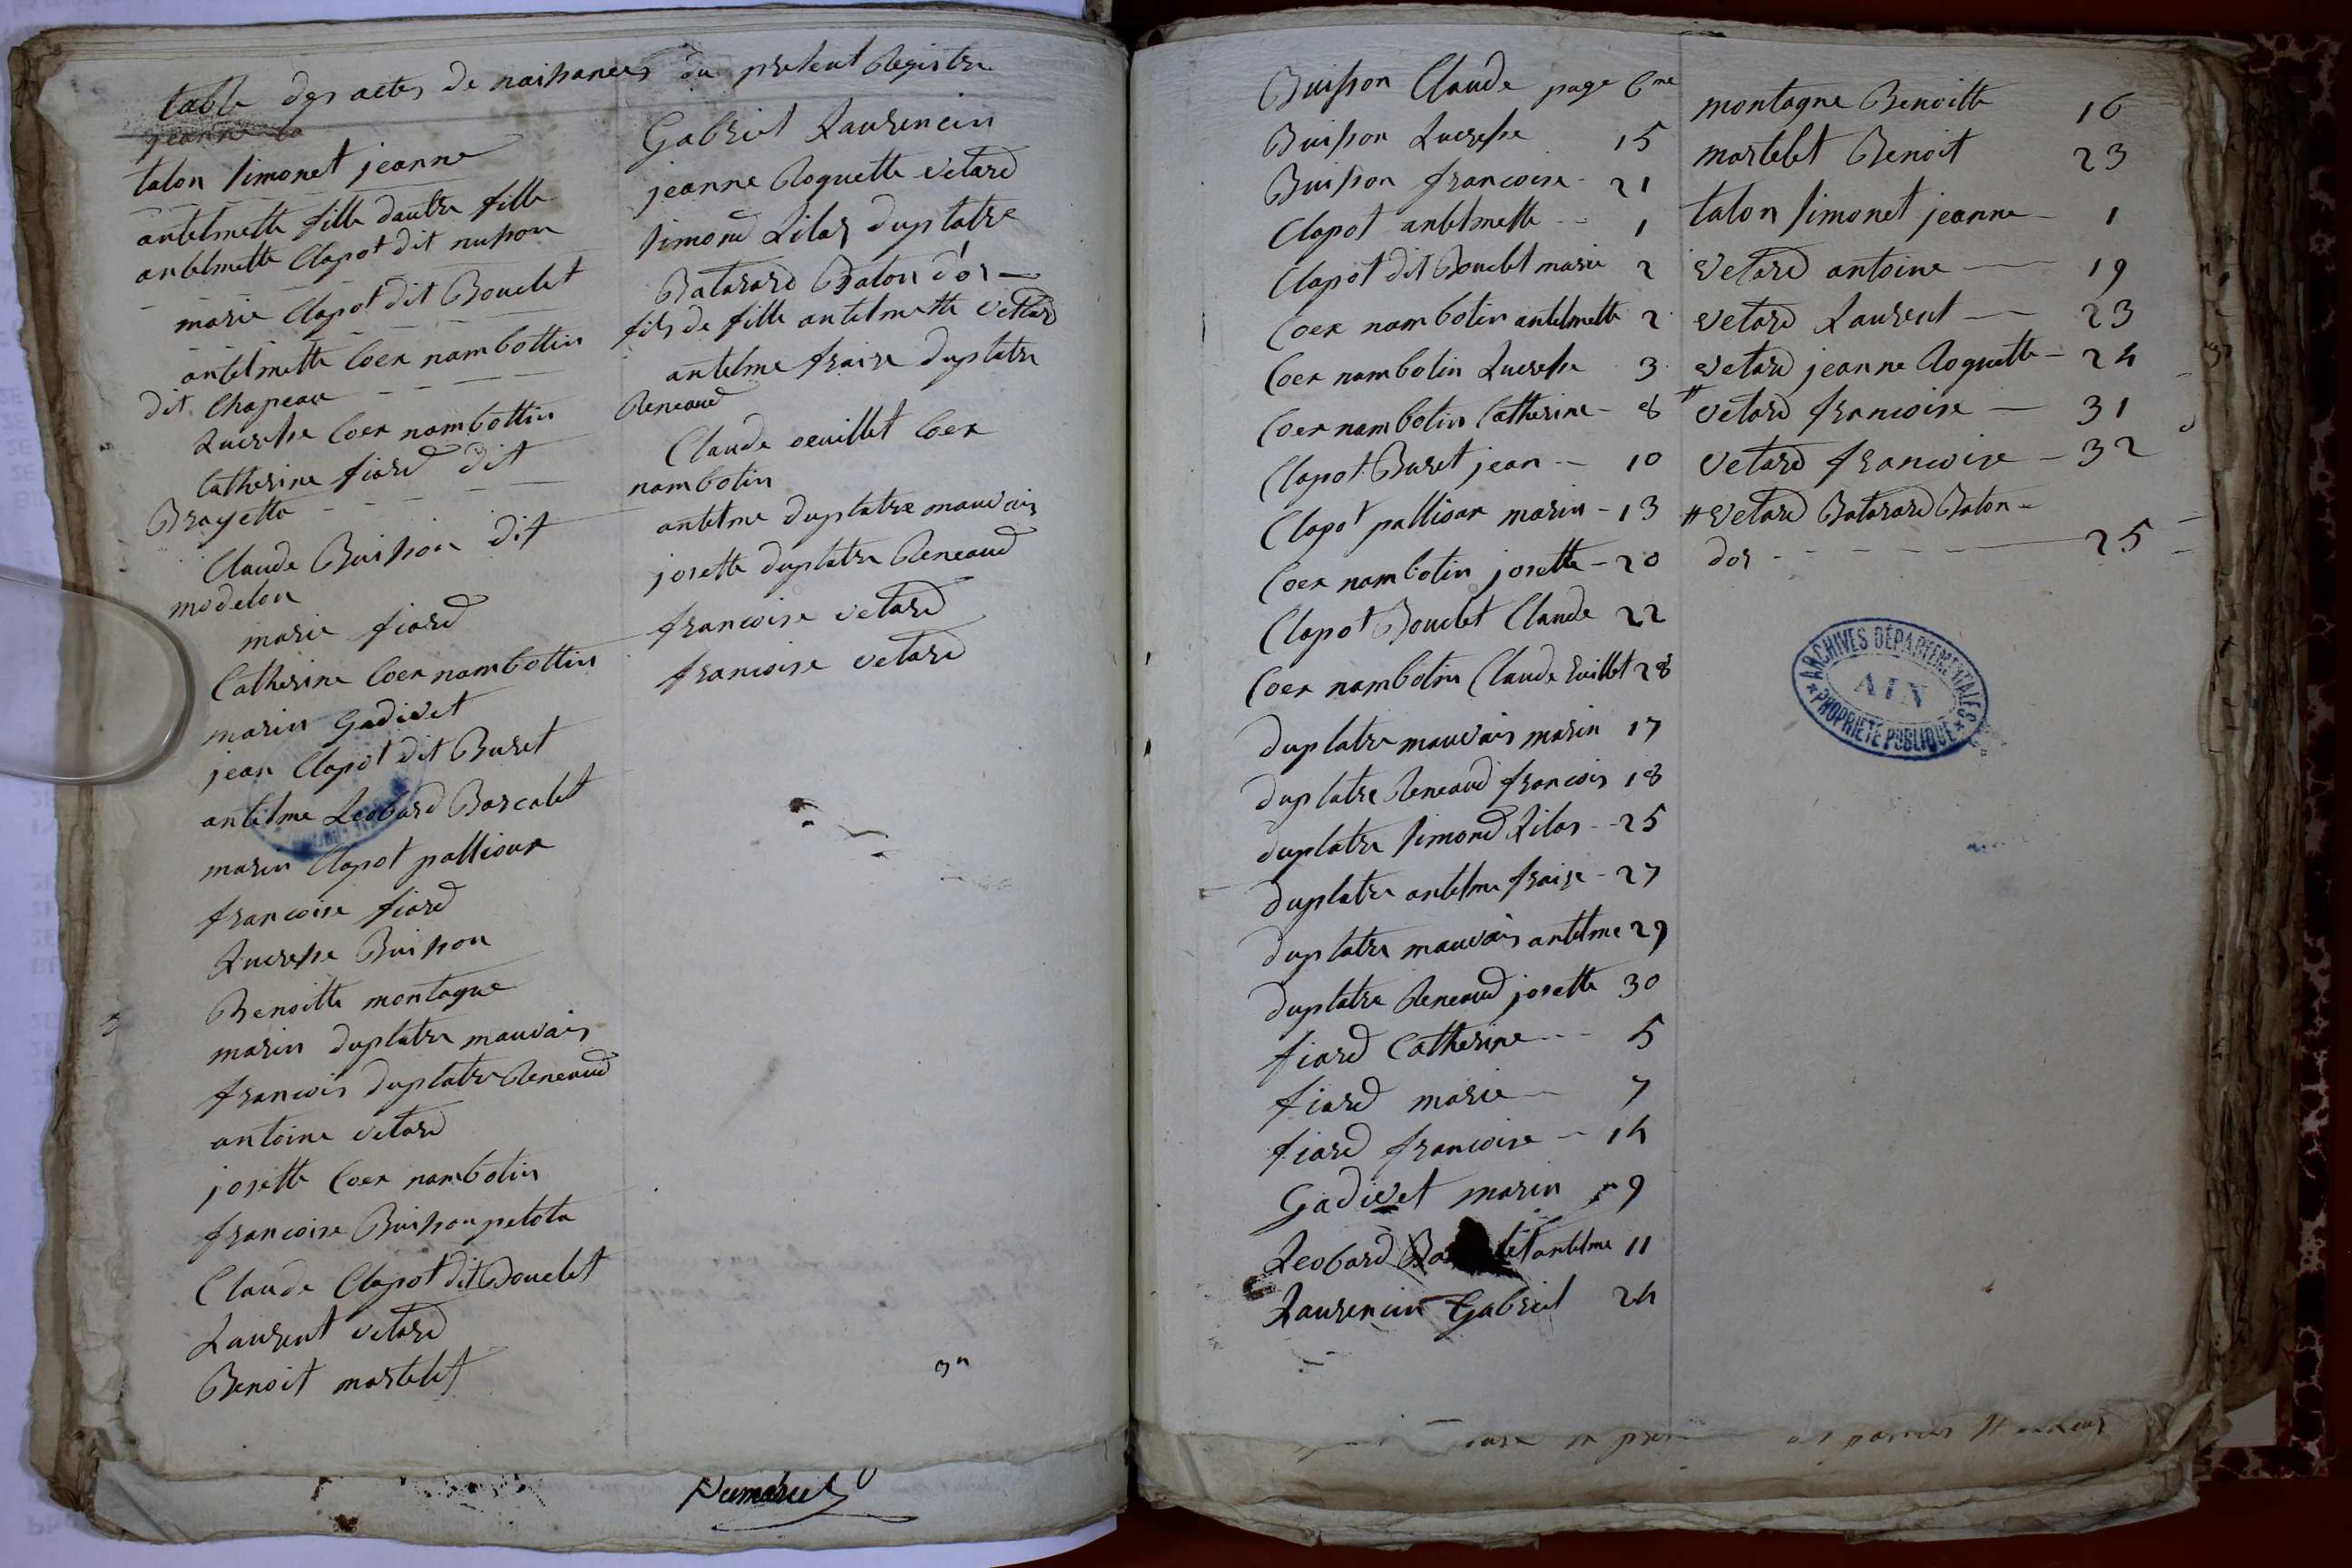 table des actes de naissances du présent Registre
jeanne ta
talon simonet jeanne
antelmette fille dautre fille
antelmette Clapot dit nusson
marie Clapot dit Bouclet
antelmette Coex nambottin
dit Chapeau
Lucresse Coex nambottin
Catherine fiard dit
Brayetta
Claude Buisson dit
modelon
marie fiard
Catherine Coex nambottin
marin Gadivet
jean Clapot dit Buret
antelme Leobard Barcalet
marin Clapot pallioux
francoise fiard
Lucresse Buisson
Benoitte montagne
marin duplatre mauvais
francois duplatre Reneaud
antoine vetard
josette Coex nambotin
francoise Buisson petota
Claude Clapot dit Bouclet
Laurent vetard
Benoit martelet
Gabriel Laurencin
jeanne Roguette vetard
simond Lilas duplatre
Batarard Baton d'or
fils de fille antelmette vettard
antelme fraise duplatre
Reneaud
Claude oeuillet Coex
nambotin
antelme duplatre mauvais
josette duplatre Reneaud
francoise vetard
francoise vetard
Dumarest
Buisson Claude page 6me
Buisson Lucresse 15
Buisson francoise 21
Clapot antelmette 1
Clapot dit Bouclet marie 2
Coex nambotin antelmette 2
Coex nambotin Lucresse 3
Coex nambotin Catherine 8
Clapot Buret jean 10
Clapot pallioux marin 13
Coex nambotin josette 20
Clapot Bouclet Claude 22
Coex nambotin Claude Euillet 28
duplatre mauvais marin 17
duplatre Reneaud francois 18
duplatre simond Lilas 25
duplatre antelme fraise 27
duplatre mauvais antelme 29
duplatre Reneaud josette 30
fiard Catherine 5
fiard marie 7
fiard francoise 14
Gadivet marin 9
Leobard antelme 11
Laurencin Gabriel 24
montagne Benoitte 16
martelet Benoit 23
talon simonet jeanne 1
vetard antoine 19
vetard Laurent 23
vetard jeanne Roguette 24
# vetard francoise 31
vetard francoise 32
# vetard Batarard Baton
dor 25
ARCHIVES DÉPARTEMENTALES
AIN
PROPRIÉTÉ PUBLIQUE